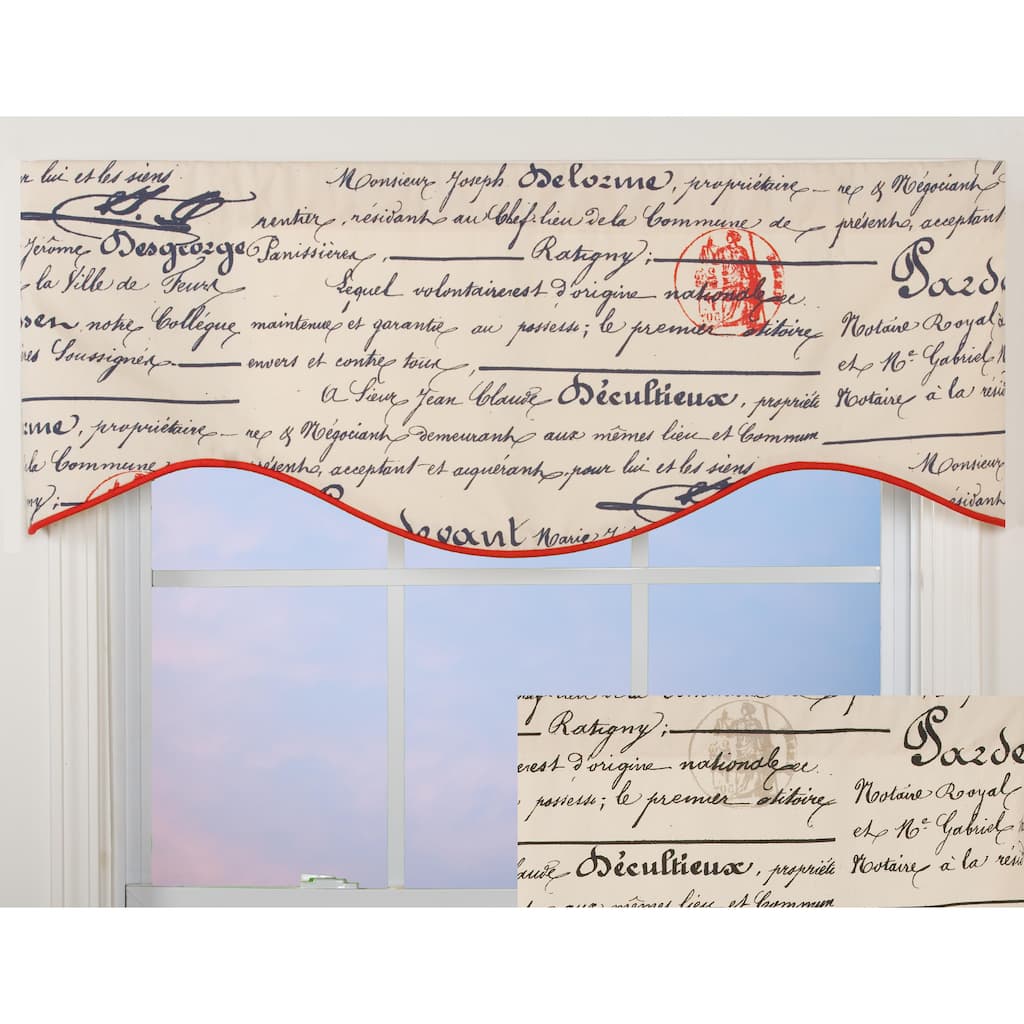 lui et les siens
Monsieur Joseph Delorme, propriétaire – re & Négociant
rentier, résidant au Chef-lieu de la Commune de présent, acceptant
Jérôme Desgeorge Panissières, Ratigny;
la Ville de Feurs Lequel volontaire est d'origine nationale
notre Collègue maintenue et garantie au possess; le premier otitoire Notaire Royal à
Soussignés envers et contre tous, et Me Gabriel
A Sieur Jean Claude Décultieux, propriéte Notaire à la rési
propriétaire – re & Négociant demeurant aux mêmes lieu et Commun
la Commune présent, acceptant et acquérant pour lui et les siens Monsieur
ny; résidant
devant Marie
Ratigny;
Parde
est d'origine nationale
possess; le premier otitoire Notaire Royal
et Me Gabriel
Décultieux, propriéte Notaire à la rési
aux mêmes lieu et Commun